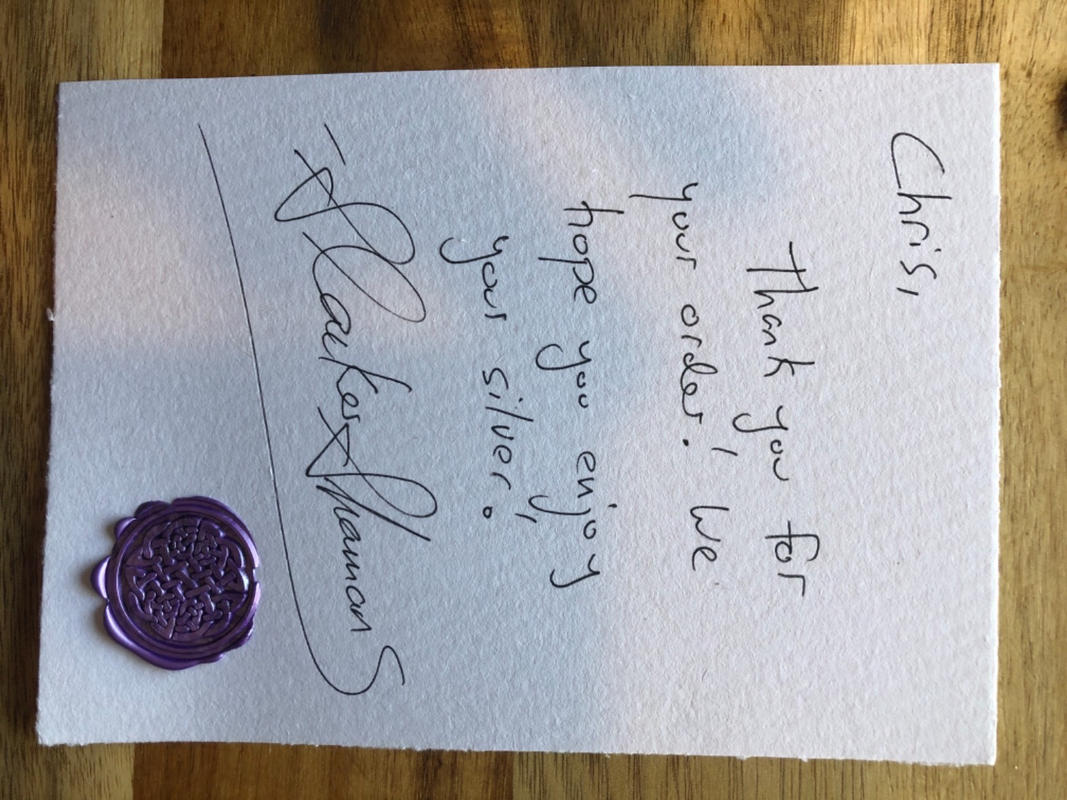 Chris,
Thank you for
your order! We
hope you enjoy
your silver!